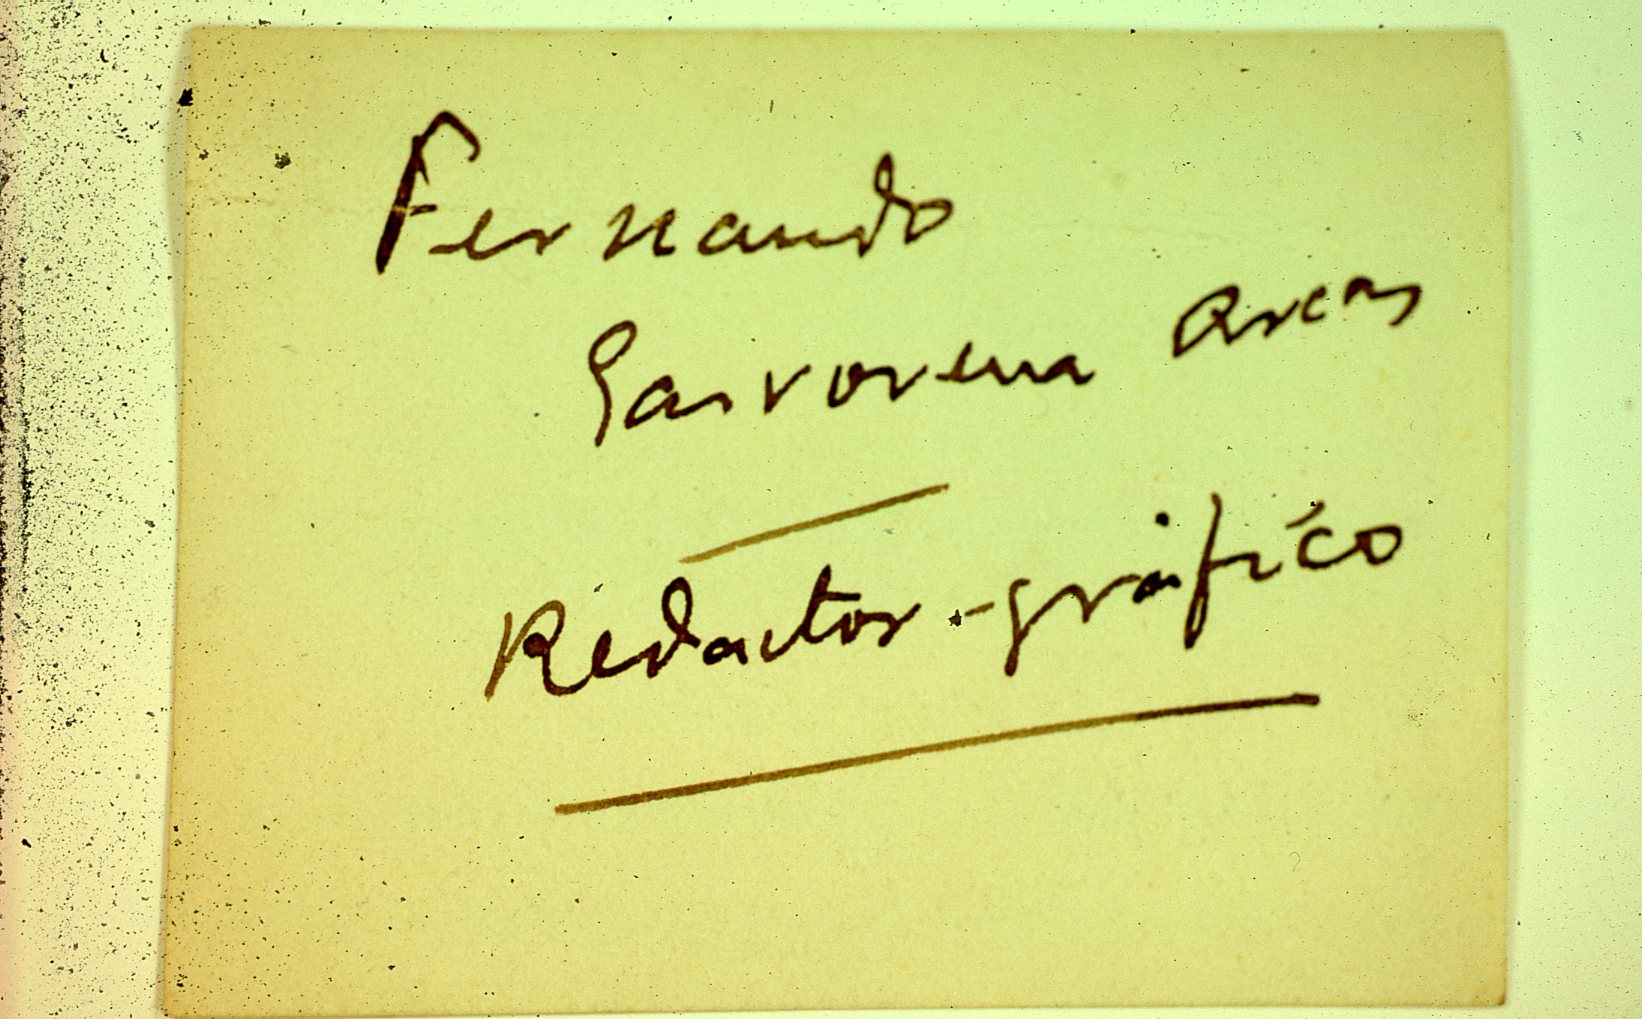 Fernando
Garrorena Arcas
Redactor-gráfico